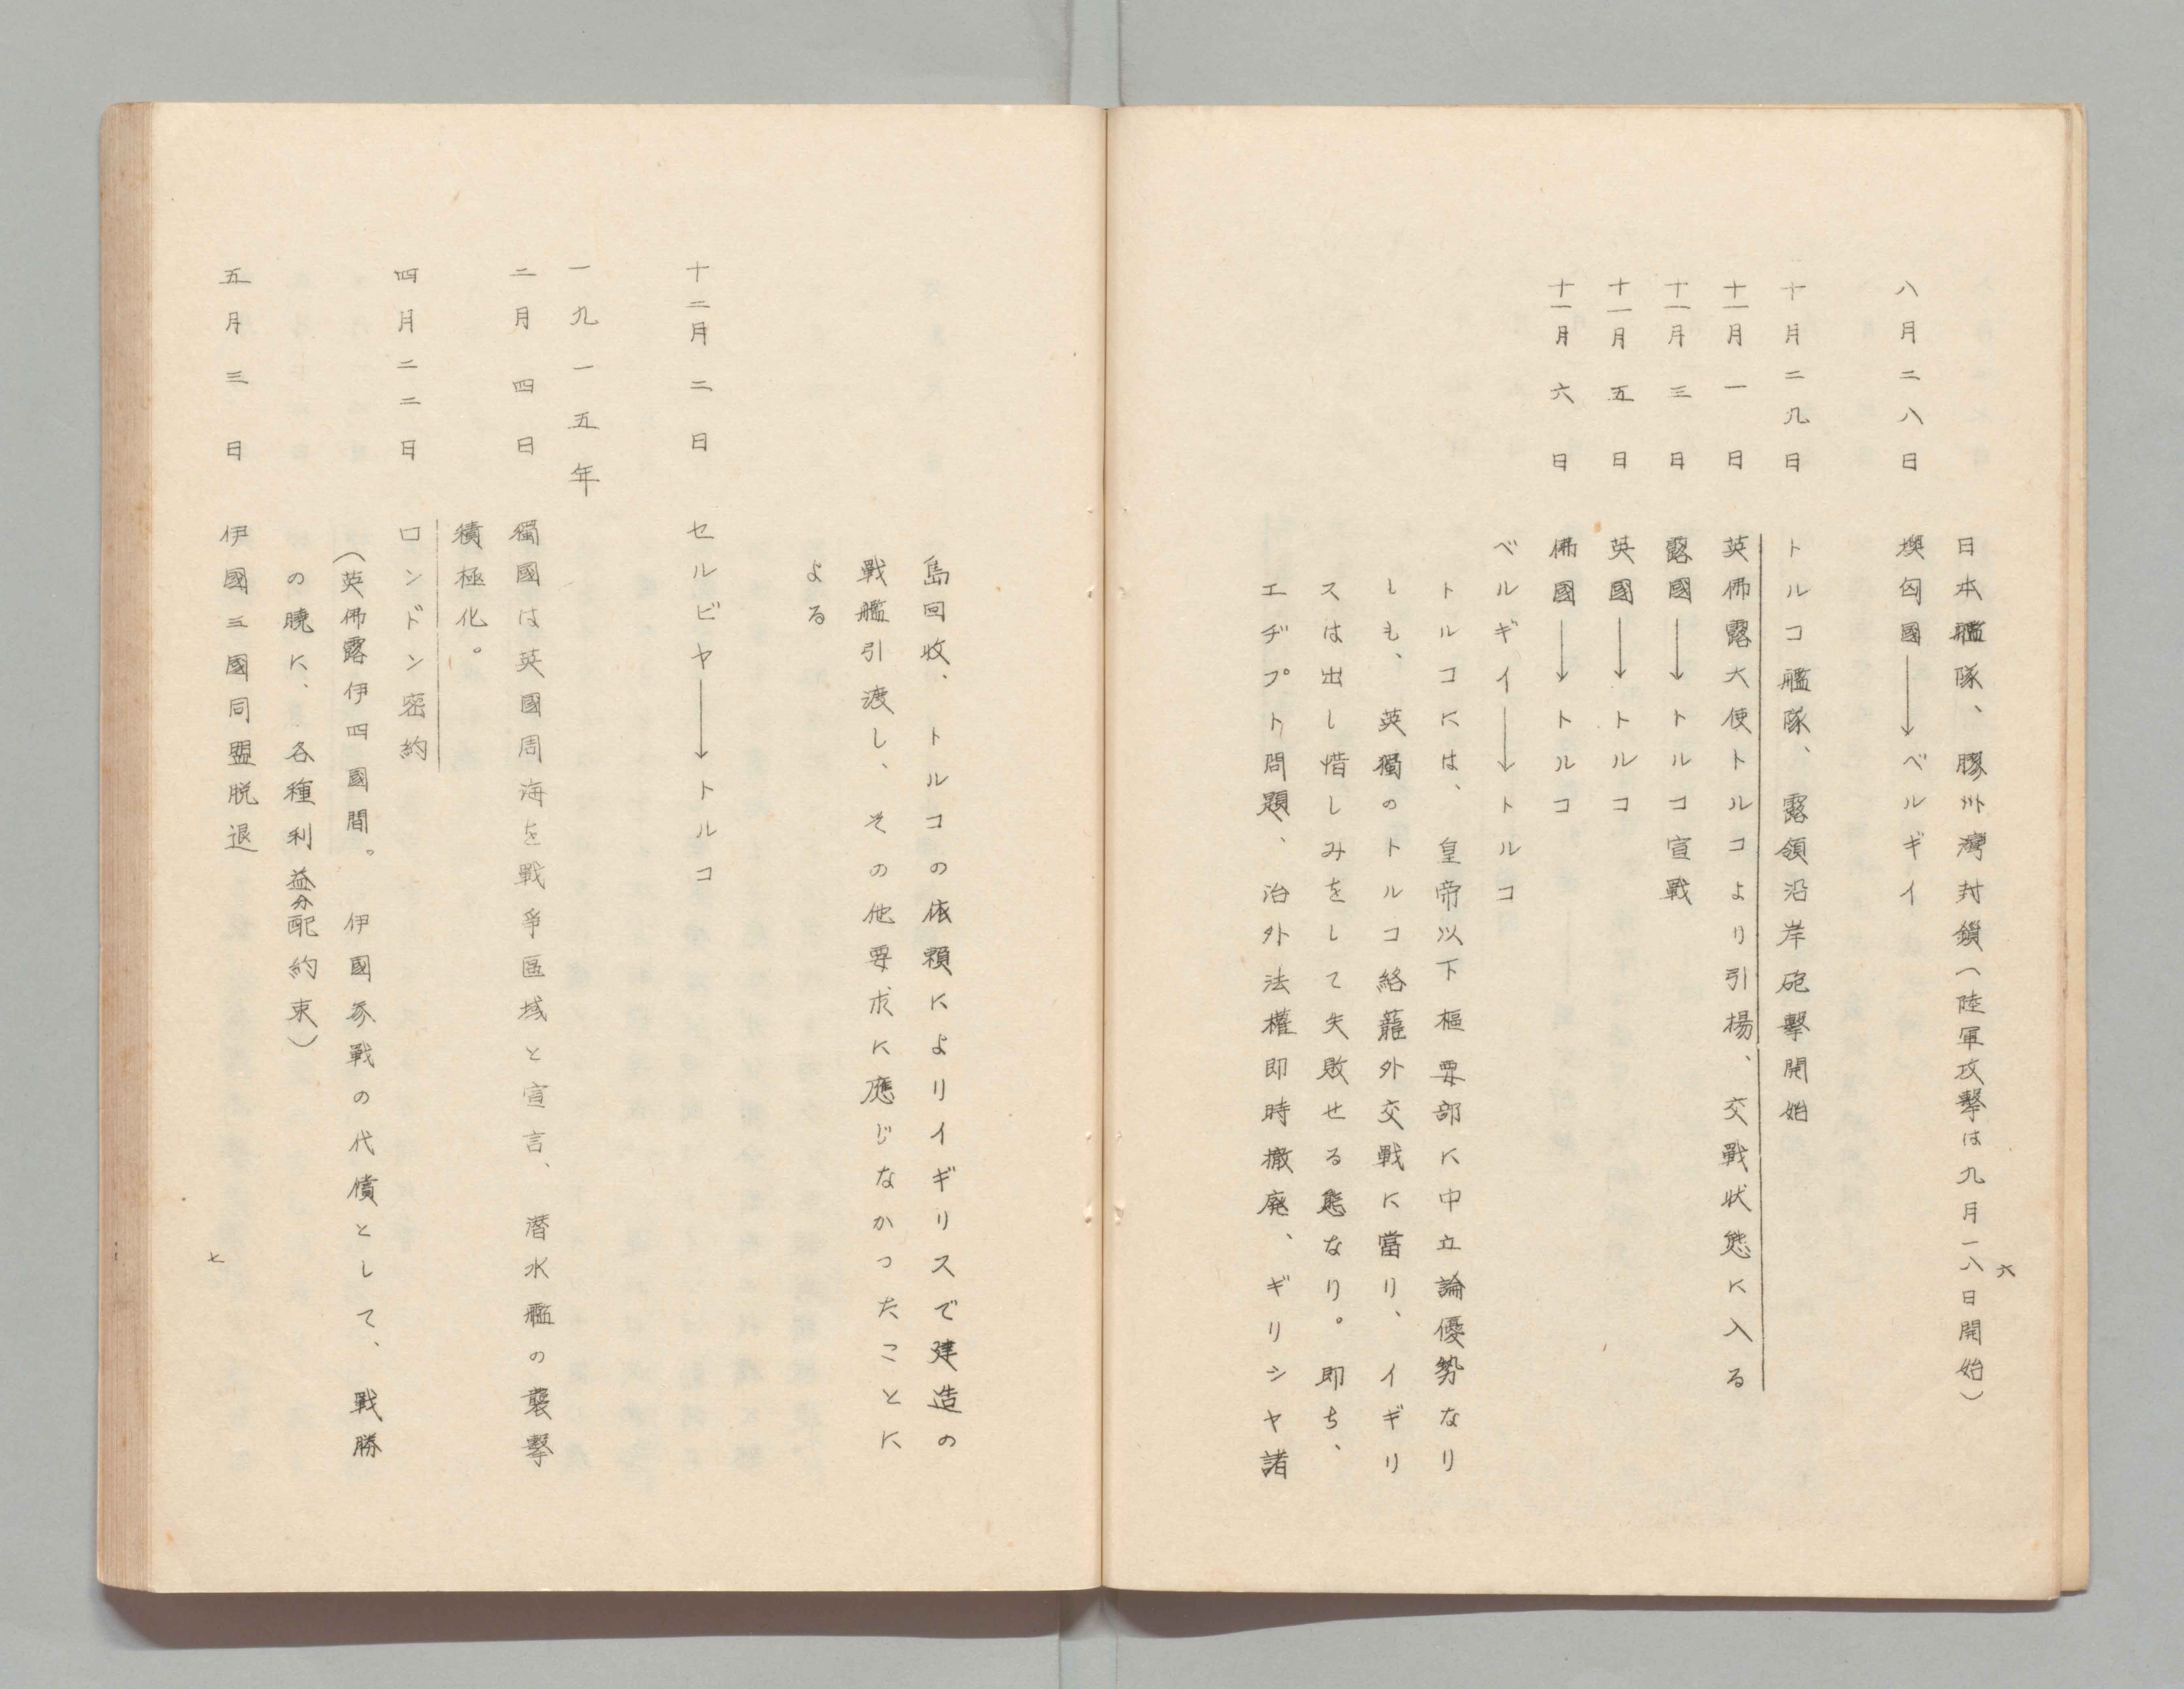 日本艦隊、膠州灣封鎖(陸軍攻擊は九月一八日開始)
八月二八日 墺匈國→ベルギイ
十月二九日 トルコ艦隊、露領沿岸砲擊開始
十一月一日 英佛露大使トルコより引揚、交戰状態に入る
十一月三日 露國→トルコ宣戰
十一月五日 英國→トルコ
十一月六日 佛國→トルコ
ベルギイ→トルコ
トルコには、皇帝以下樞要部に中立論優勢なり
しも、英獨のトルコ絡籠外交戰に當り、イギリ
スは出し惜しみをして失敗せる態なり。即ち、
エヂプト問題、治外法權即時撤廃、ギリシヤ諸
六
島回收、トルコの依賴によりイギリスで建造の
戰艦引渡し、その他要求に應じなかつたことに
よる
十二月二日 セルビヤ→トルコ
一九一五年
二月四日 獨國は英國周海を戰爭區域と宣言、潜水艦の襲擊
積極化。
四月二二日 ロンドン密約
(英佛露伊四國間。伊國参戰の代償として、戰勝
の曉に、各種利益分配約束)
五月三日 伊國三國同盟脱退
七